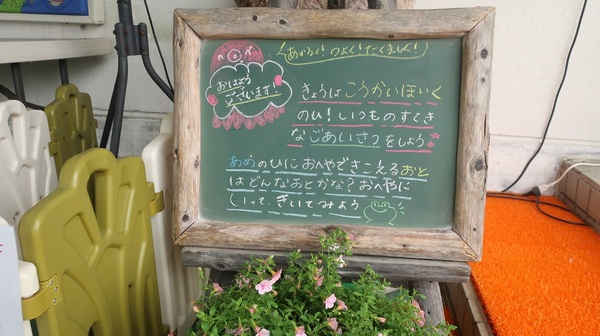 あかるく！つよく！たくましく！
おはよう
ございます！
きょうは こうかいほいく
のひ！いつものすてき
なごあいさつをしよう
あめのひに おへやできこえるおと
はどんなおとかな？おへやに
いって、きいてみよう